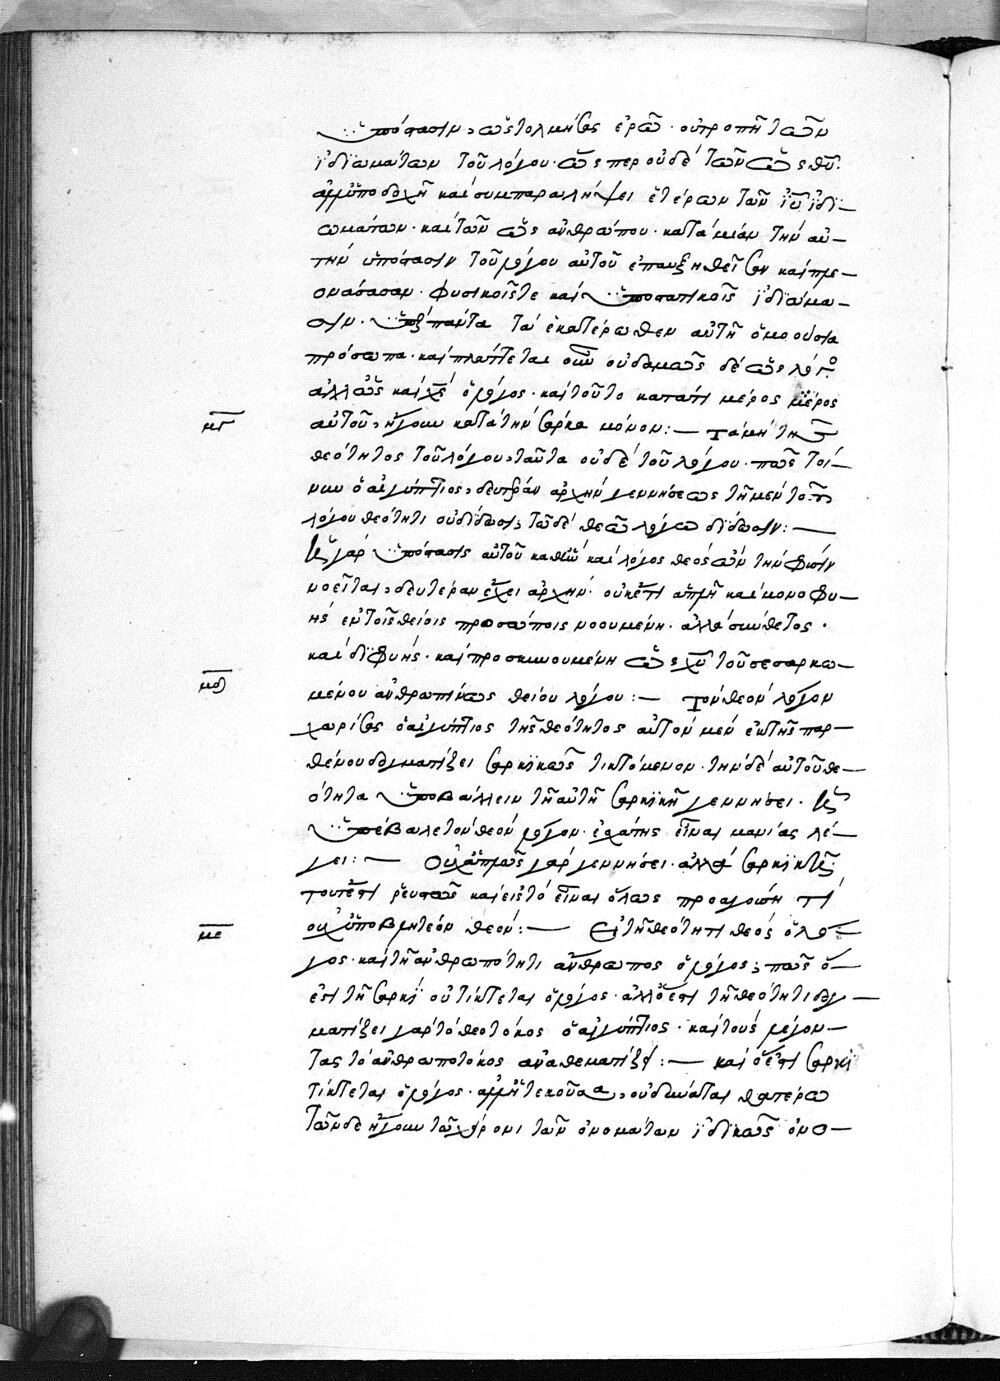 ὑπόστασιν, ὡς τολμήσας ἐρῶ· οὐ τροπῇ τῶν
ἰδιωμάτων τοῦ λόγου· ὥσπερ οὐδὲ τῶν ὡς θῦ·
ἀλλ' ὑποδοχῇ καὶ συμπαραλήψει ἑτέρων τῶν ἰδι-
ωμάτων· καὶ τῶν ὡς ἀνθρώπου· κατὰ μίαν τὴν αὐ-
τὴν ὑπόστασιν τοῦ λόγου αὐτοῦ ἐπαυξηθεῖσαν καὶ πλε-
ονάσασαν· φυσικοῖς τε καὶ ὑποστατικοῖς ἰδιώμα-
σιν· πάντα τὰ ἑκατέρωθεν αὐτῇ ὁμοούσια
πρόσωπα· καὶ πλάττεται οὖν οὐδαμῶς δὲ ὡς λόγος
ἀλλ' ὡς καὶ χς ὁ λόγος· καὶ τοῦτο κατά τι μέρος μέρος
μγ αὐτοῦ, ἤγουν κατὰ τὴν σάρκα μόνον:— Τὰ μὴ τῆς
θεότητος τοῦ λόγου, ταῦτα οὐδὲ τοῦ λόγου· πῶς τοί-
νυν ὁ αἰγύπτιος, δευτέραν ἀρχὴν γεννήσεως τῇ μὲν τοῦ
λόγου θεότητι οὐ δίδωσι; τῷ δὲ θεῷ λόγῳ δίδωσιν:—
γὰρ ὑπόστασις αὐτοῦ καθὼ καὶ λόγος θεὸς ὢν τὴν φύσιν
νοεῖται, δευτέραν ἔχει ἀρχήν· οὐκέτι ἁπλῆ καὶ μονοφυ-
ὴς ἐν τοῖς θείοις προσώποις νοουμένη· ἀλλὰ σύνθετος·
καὶ διφυής· καὶ προσκυνουμένη ὡς χυ τοῦ σεσαρκω-
μδ μένου ἀνθρωπίνως θείου λόγου:— Τὸν θεὸν λόγον
χωρίσας ὁ αἰγύπτιος τῆς θεότητος αὐτὸν μὲν ἐκ τῆς παρ-
θένου δογματίζει σαρκικῶς τικτόμενον· τὴν δὲ αὐτοῦ θε-
ότητα ὑποβάλλειν τῇ αὐτῇ σαρκικῇ γεννήσει·
ὑπέβαλε τὸν θεὸν λόγον· ἐσχάτης εἶναι μανίας λέ-
γει:— Οὐχ ἁπλῶς γὰρ γεννήσει· ἀλλὰ σαρκικῇ
τουτέστι ῥευστῶς καὶ εἰς τὸ εἶναι ὅλως προαγούσῃ τι
με οὐχ ὑποβλητέον θεόν:— Εἰ τῇ θεότητι θεὸς ὁ λό-
γος· καὶ τῇ ἀνθρωπότητι ἄνθρωπος ὁ λόγος; πῶς ὅ-
ἐστι τῇ σαρκὶ οὐ τίκτεται ὁ λόγος· ἀλλ' ὅ ἐστι τῇ θεότητι δογ-
ματίζει γὰρ τὸ θεοτόκος ὁ αἰγύπτιος· καὶ τοὺς λέγον-
τας τὸ ἀνθρωποτόκος ἀναθεματίζει:— καὶ ὅ ἐστι σαρκὶ
τίκτεται ὁ λόγος· ἀλλ' ἡ τεκοῦσα, οὐ δύναται θατέρῳ
τῶνδε ἤγουν τῶν ὀνομάτων ἰδικῶς ὀνο-